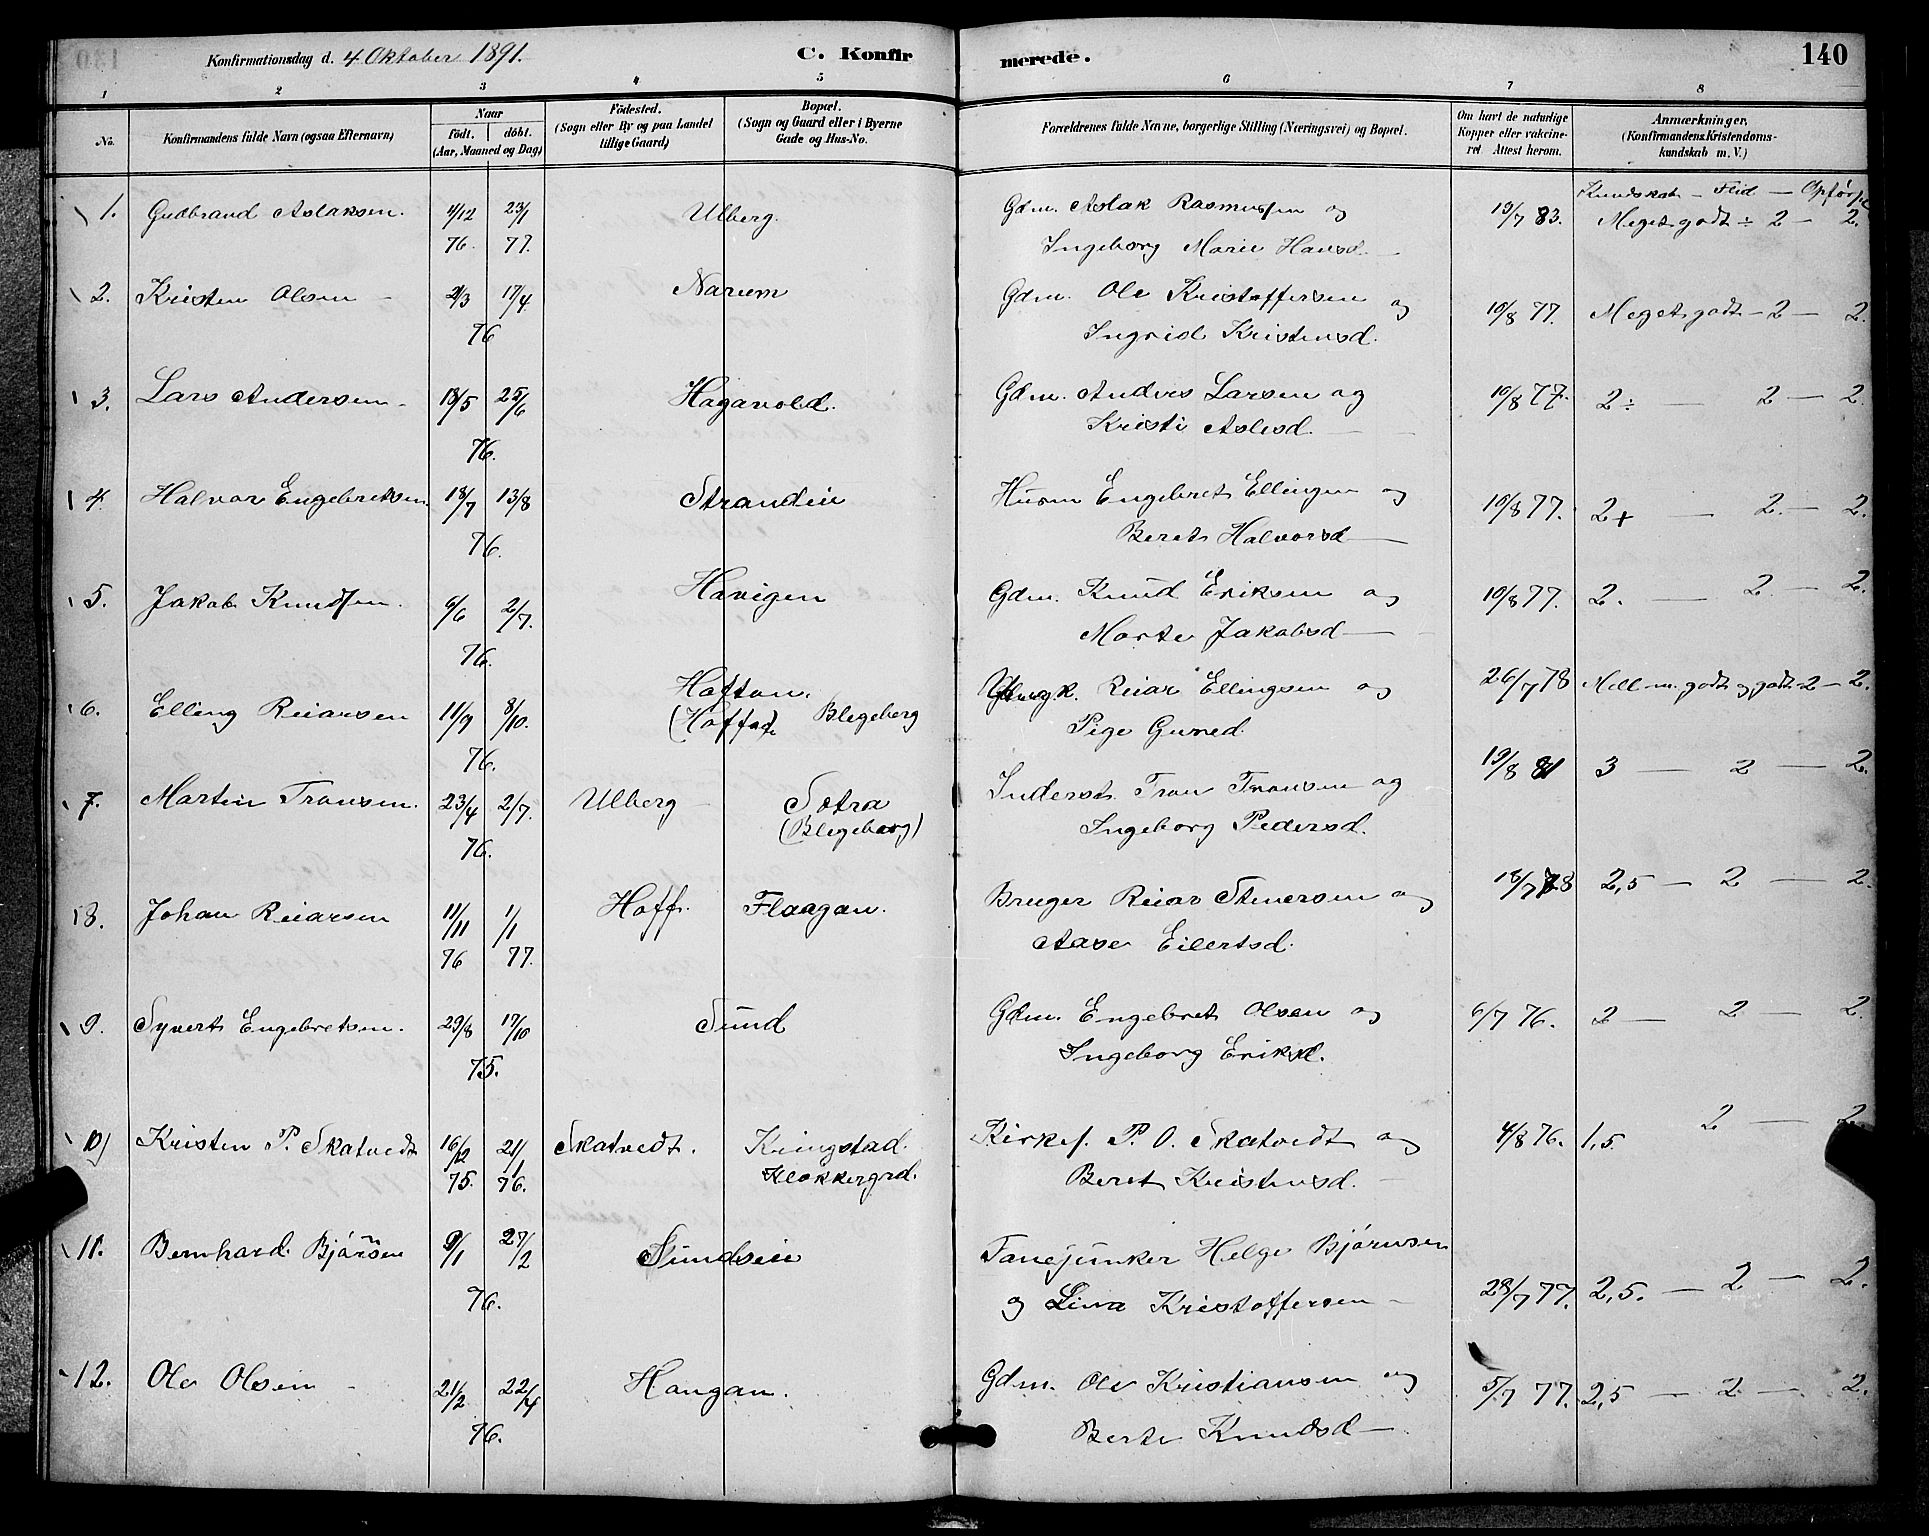 Konfirmationsdag d. 4 Oktober 1891. C. Konfirmerede. 140
1 2 3 4 5 6 7 8
No. Konfirmandens fulde Navn (ogsaa Efternavn) Naar født. døbt. (Aar, Maaned og Dag) Fødested. (Sogn eller By og paa Landet tillige Gaard) Bopæl. (Sogn og Gaard eller i Byerne Gade og Hus-No. Forældrenes fulde Navne, borgerlige Stilling (Næringsvei) og Bopæl. Om havt de naturlige Kopper eller vakcineret Attest herom. Anmærkninger, (Konfirmandens Kristendomskundskab m. V.)
Kundskab – Flid –
1. Gudbrand Aslaksen. 4/12 23/1 Ulberg. Gdm. Aslak Rasmussen og 19/7 83. Meget godt ÷ 2 – 2.
76. 77. Ingeborg Marie Hansd.
2. Kristen Olsen 2/3 17/4 Narum Gdm. Ole Kristoffersen og 10/8 77. Meget godt – 2 – 2.
76 Ingrid Kristensd.
3. Lars Andersen 18/5 25/6 Hagavold. Gdm. Anders Larsen og 10/8 77. 2÷ – 2 – 2.
76. Kristi Aslesd.
4. Halvor Engebretsen 18/7 13/8 Strandeie Husm Engebret Ellingsen og 10/8 77. 2+ – 2. – 2.
76. Beret Halvorsd
5. Jakob Knudsen. 6/6 2/7. Havigen Gdm. Knud Eriksen og 10/8 77. 2. – 2. – 2.
76. Marte Jakobsd
6. Elling Reiarsen 11/9 8/10. Hoftan. Blegeberg Ungk. Reiar Ellingsen og 26/7 78 Mell. m. godt og godt – 2 – 2.
76. Pige Guned.
7. Martin Transen. 23/4 2/7. Ulberg Sotra Inderst. Tran Transen og 19/8 81 3 – 2 – 2.
76. (Blegeberg) Ingeborg Pedersd.
8. Johan Reiarsen 11/11 1/1 Hoff. Flaagan. Bruger Reiar Stenersen og 18/7 78 2,5 – 2 – 2.
76 77. Aase Eilertsd.
9. Syvert Engebretsen. 29/8 17/10 Sund Gdm. Engebret Olsen og 6/7 76. 2 – 2 – 2.
75. Ingeborg Eriksd.
10) Kristen P. Skatvedt 16/12 21/1 Skatvedt. Kringstad. Kirkes. P. O. Skatvedt og 4/8 76. 1,5. 2 – 2.
75. 76. Klokkergrd. Beret Kristensd.
11. Bernhard Bjørnsen 9/1 27/2 Sundseie Fanejunker Helge Bjørnsen
76. og Lina Kristoffersen 28/7 77. 2,5. – 2 – 2.
12. Ole Olsen 21/2 22/4 Haugan. Gdm. Ole Kristiansen og 5/7 77. 2,5 – 2 – 2.
76. Berte Knudsd